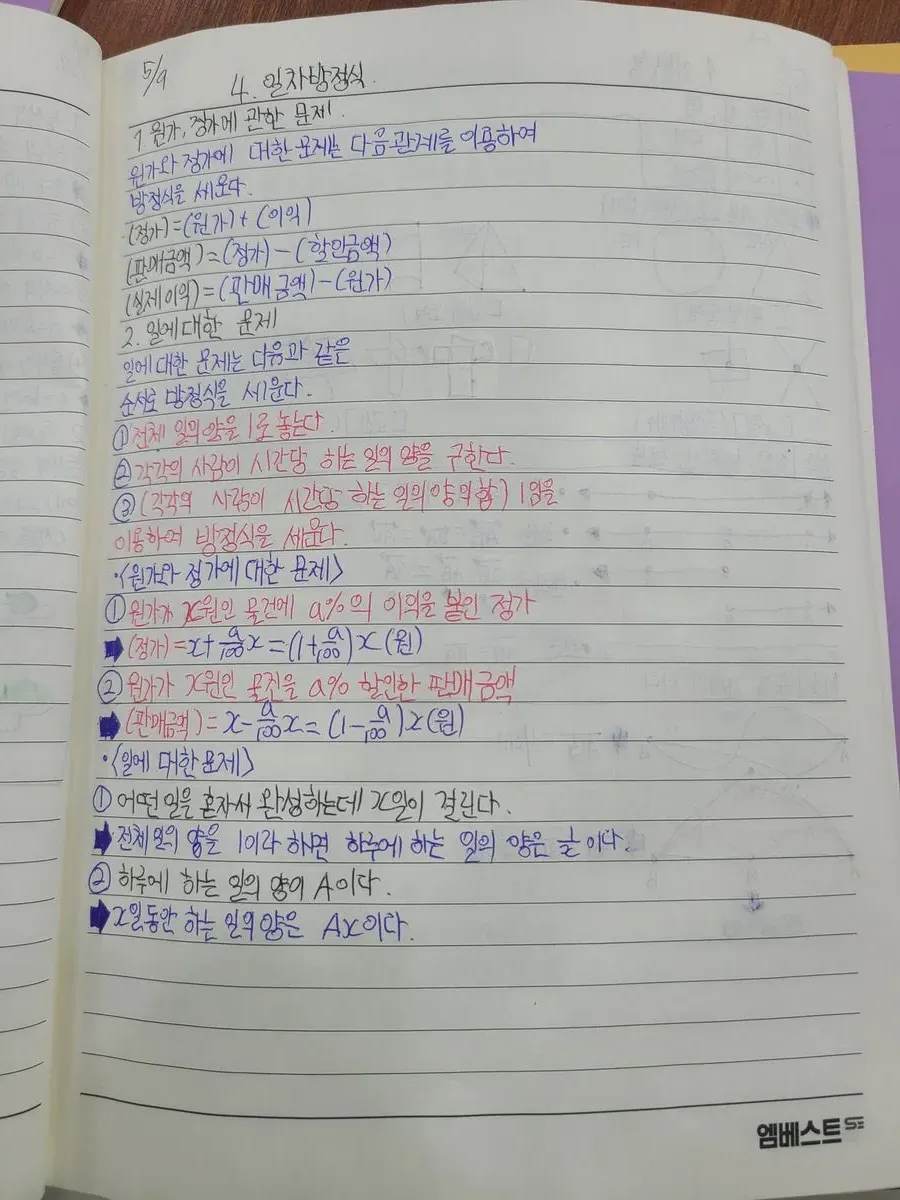 5/9
4. 일차방정식.
1 원가, 정가에 관한 문제.
원가와 정가에 대한 문제는 다음관계를 이용하여
방정식을 세운다.
·(정가)=(원가)+(이익)
(판매금액)=(정가)-(할인금액)
(실제이익)=(판매금액)-(원가)
2. 일에대한 문제
일에대한 문제는 다음과 같은
순서로 방정식을 세운다.
① 전체 일의양을 1로 놓는다.
② 각각의 사람이 시간당 하는 일의 양을 구한다.
③ (각각의 사람이 시간당 하는 일의양의합) 1임을
이용하여 방정식을 세운다.
·<원가와 정가에 대한 문제>
① 원가가 x원인 물건에 a%의 이익을 붙인 정가
➡ (정가)=x+a/100x=(1+a/100)x(원)
② 원가가 x원인 물건을 a% 할인한 판매금액
➡ (판매금액)=x-a/100x=(1-a/100)x(원)
·<일에 대한문제>
① 어떤 일을 혼자서 완성하는데 x일이 걸린다.
➡ 전체일의 양을 1이라 하면 하루에 하는 일의 양은 1/x이다.
② 하루에 하는 일의 양이 A이다.
➡ x일동안 하는 일의양은 Ax이다.
엠베스트SE